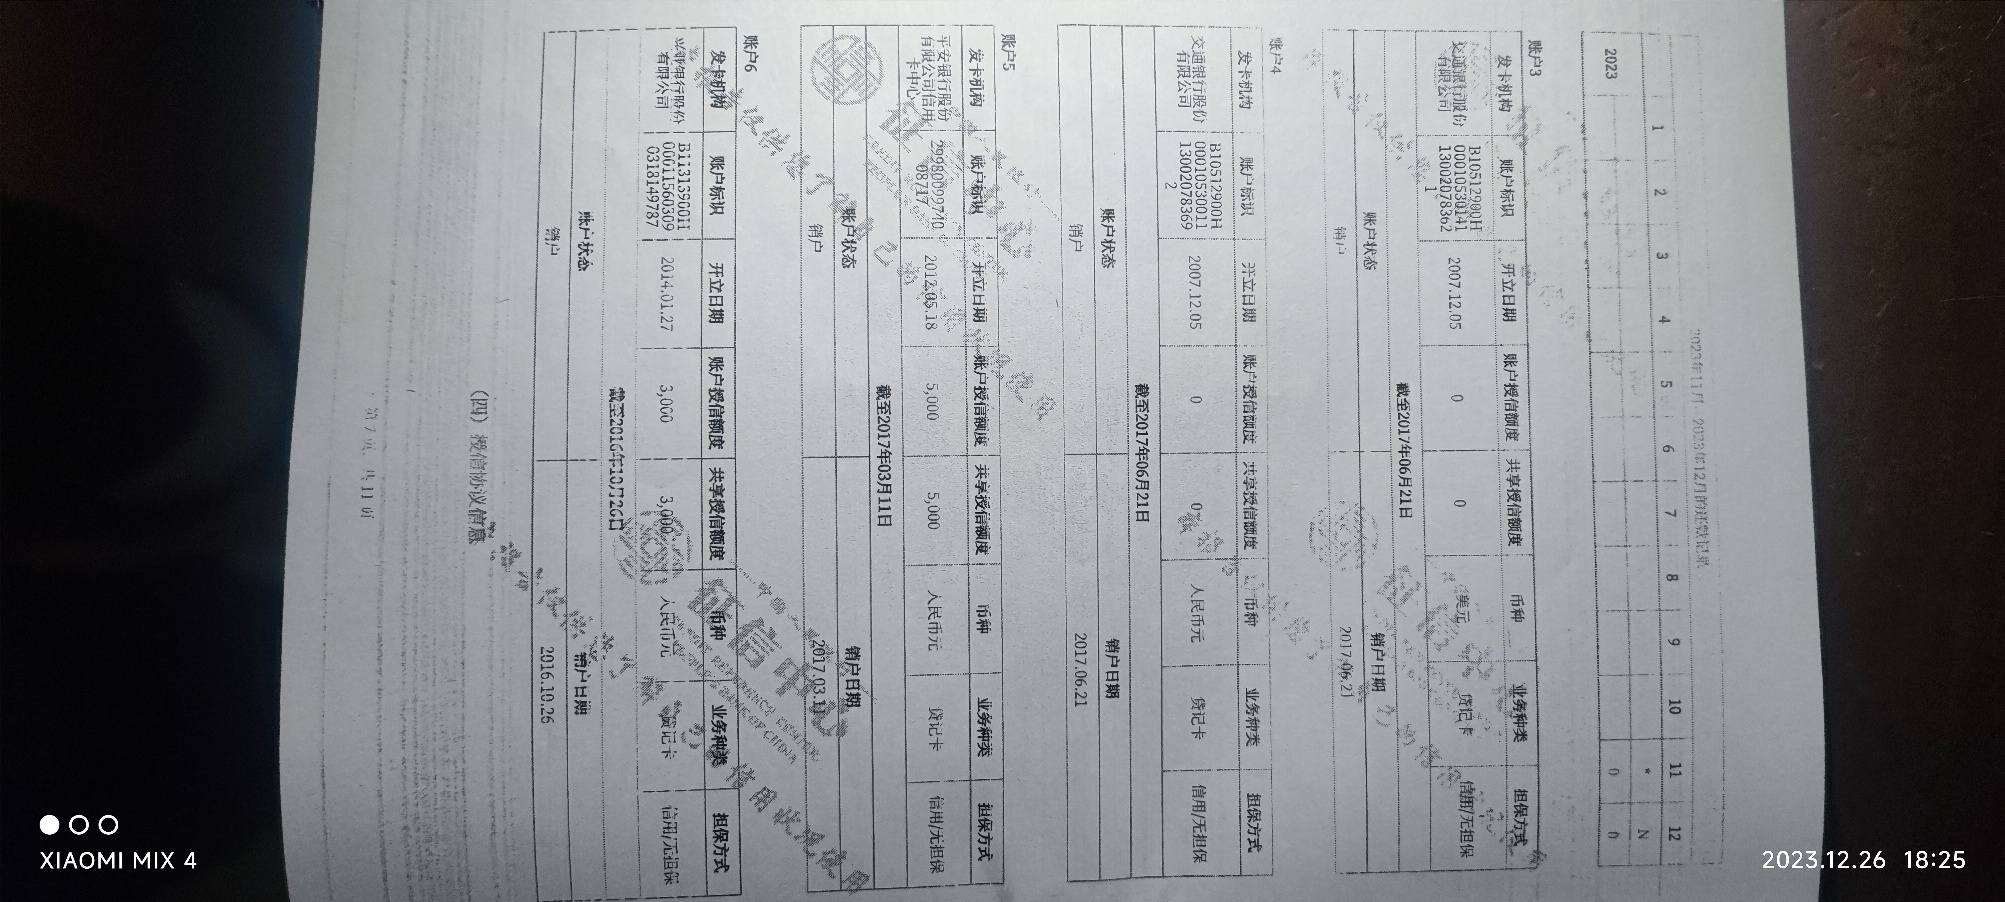 2023年11月-2023年12月的还款记录
1 2 3 4 5 6 7 8 9 10 11 12
2023
* N
0 0
账户3
发卡机构 账户标识 开立日期 账户授信额度 共享授信额度 币种 业务种类 担保方式
交通银行股份 B10512900H
有限公司 000105300141 2007.12.05 0 0 美元 贷记卡 信用/无担保
13002078362
1
截至2017年06月21日
账户状态 销户日期
销户 2017.06.21
账户4
发卡机构 账户标识 开立日期 账户授信额度 共享授信额度 币种 业务种类 担保方式
交通银行股份 B10512900H
有限公司 00010530011 2007.12.05 0 0 人民币元 贷记卡 信用/无担保
13002078369
2
截至2017年06月21日
账户状态 销户日期
销户 2017.06.21
账户5
发卡机构 账户标识 开立日期 账户授信额度 共享授信额度 币种 业务种类 担保方式
平安银行股份
有限公司信用 2012.05.18 5,000 5,000 人民币元 贷记卡 信用/无担保
卡中心 08717
截至2017年03月11日
账户状态 销户日期
销户 2017.03.11
账户6
发卡机构 账户标识 开立日期 账户授信额度 共享授信额度 币种 业务种类 担保方式
兴业银行股份 B11313900H
有限公司 00011560309 2014.01.27 3,000 3,000 人民币元 贷记卡 信用/无担保
0318149787
截至2016年10月26日
账户状态 销户日期
销户 2016.10.26
(四) 授信协议信息
第 7 页, 共 11 页
征信中心
XIAOMI MIX 4
2023.12.26 18:25